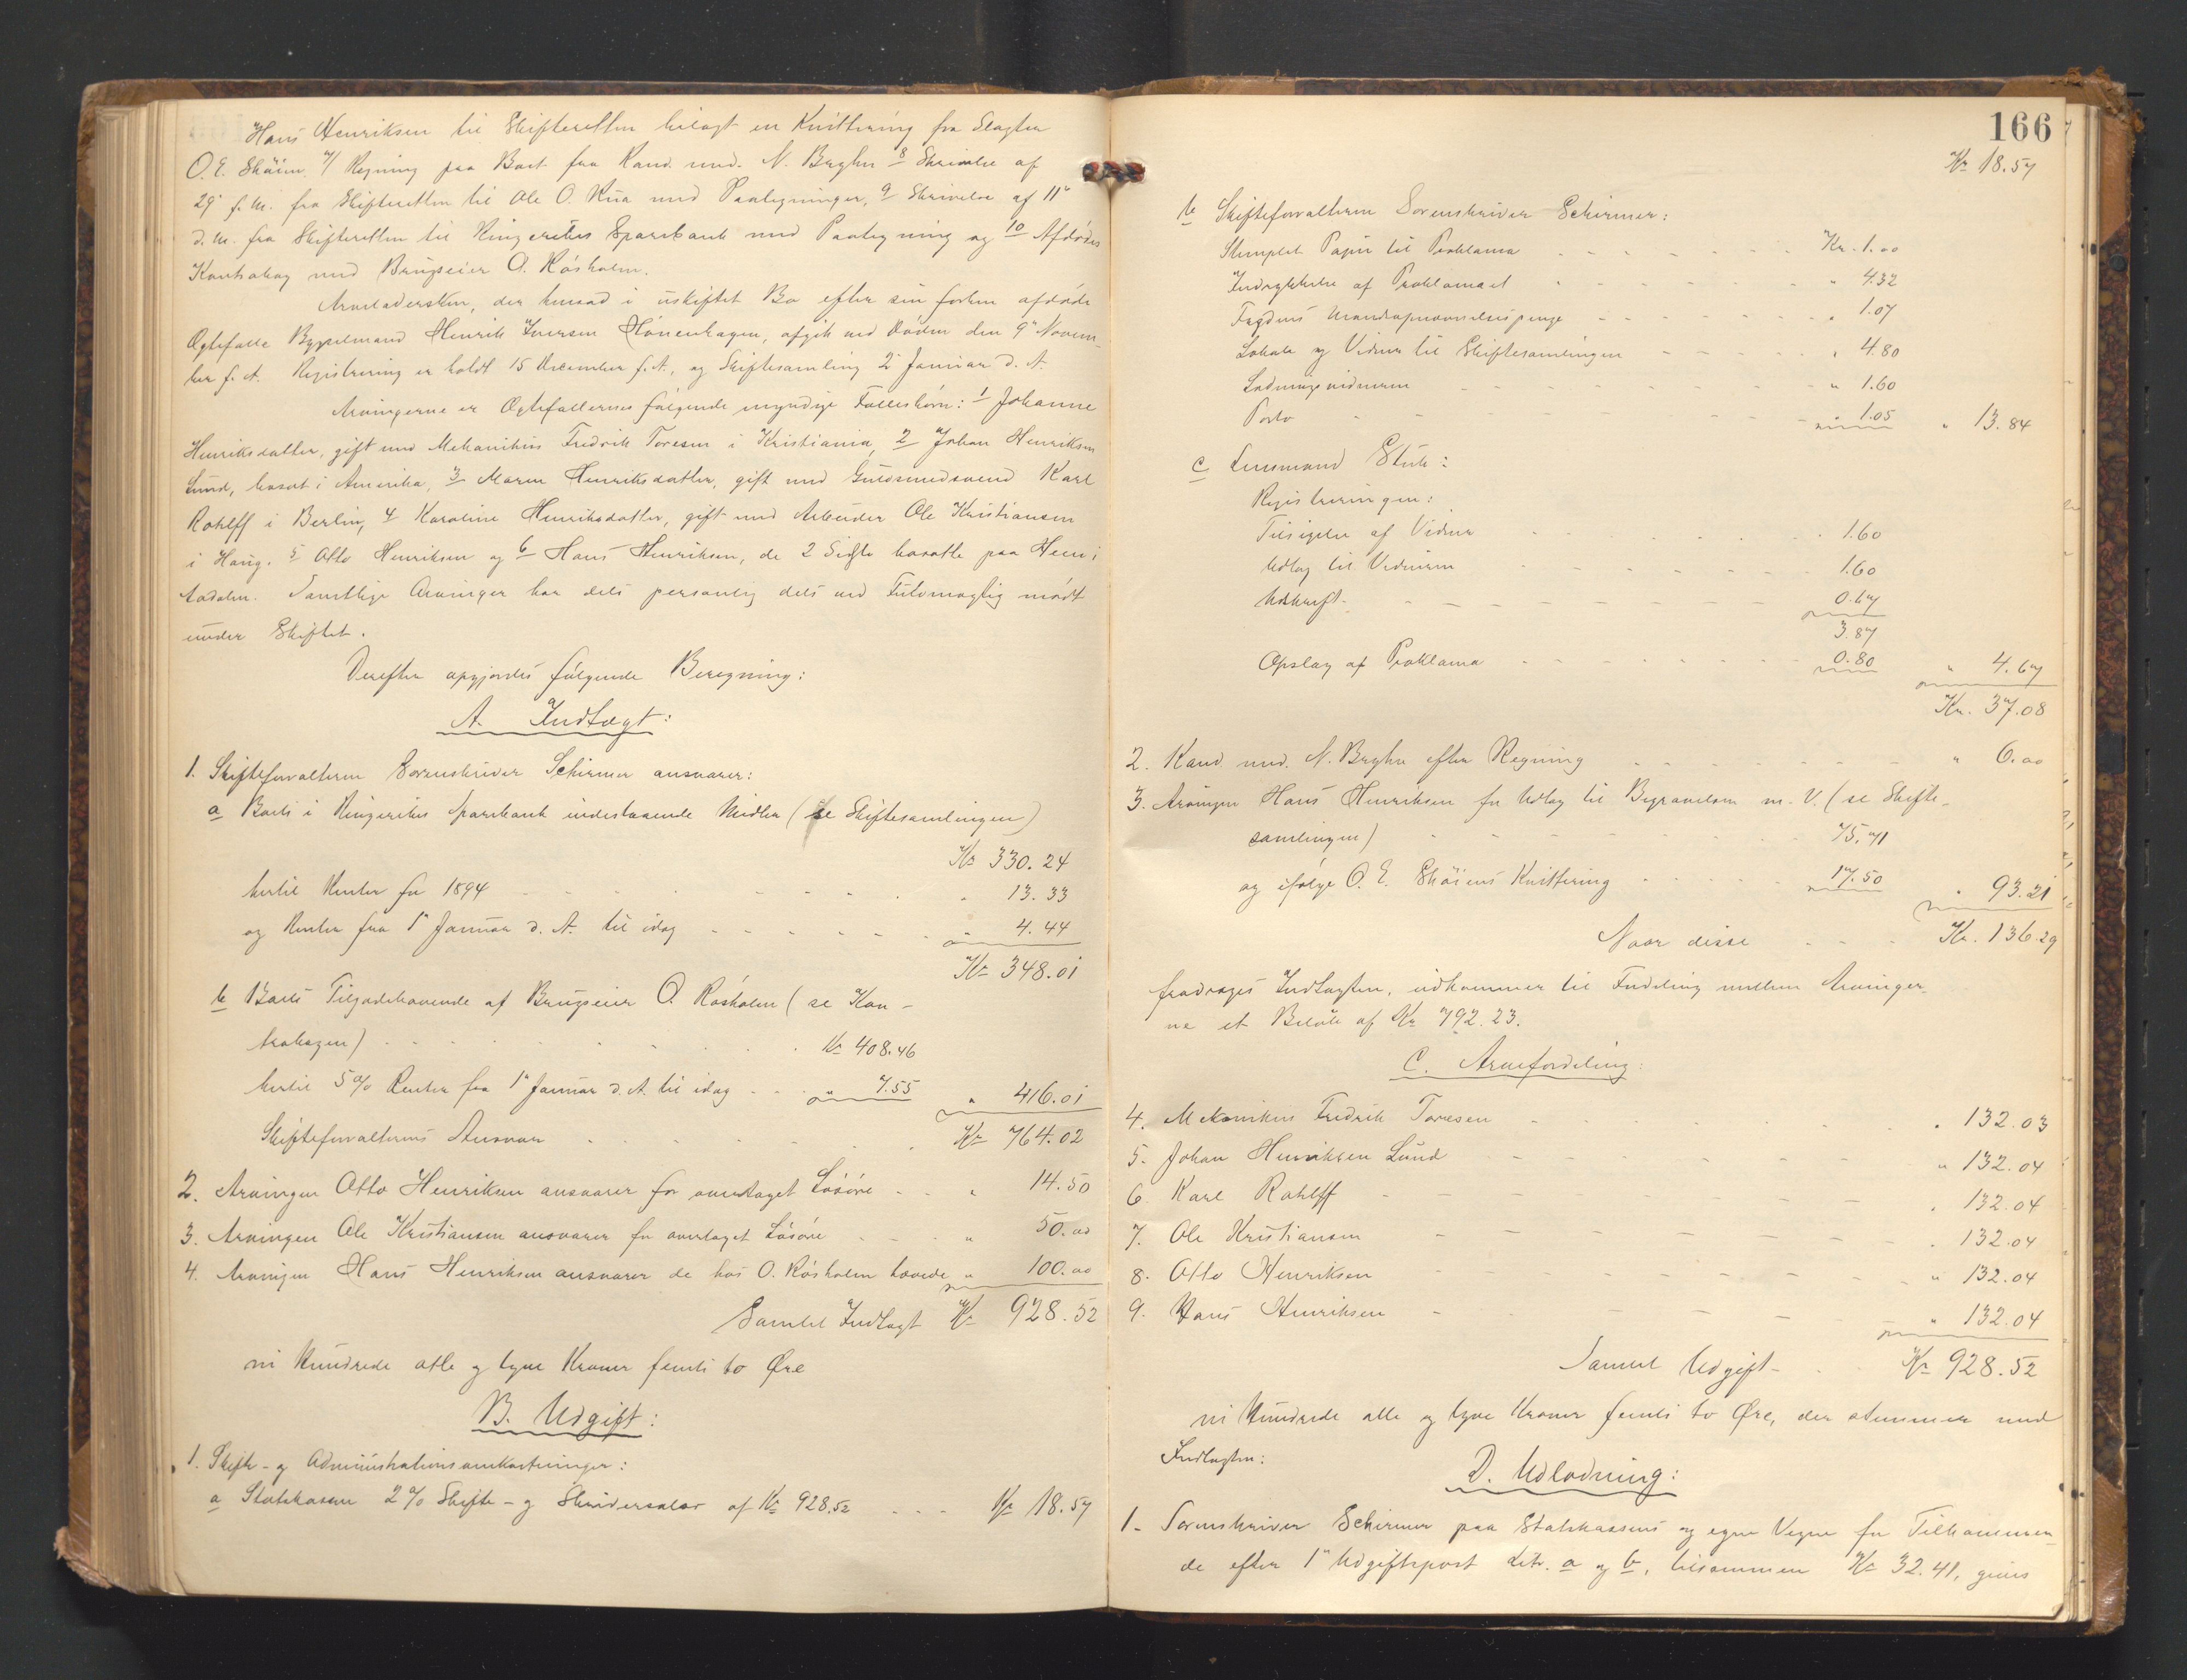 Hans Henriksen til Skifteretten bilagt en Kvittering fra Slagter
O. E. Skøien, 7/ Regning paa Boet fra Kand. med. N. Bryhn 8 Skrivelse af
29' f. M. fra Skifteretten til Ole O. Rua med Paategninger, 9 Skrivelse af 11'
d. M. fra Skifteretten til Ringerikes Sparebank med Paategning og 10 Afdødes
Kontrabog med Brugseier O. Røsholm.
Arveladersken, der hensad i uskiftet Bo efter sin forhen afdøde
Ægtefælle Bygselmand Henrik Iversen Hønenhagen, afgik ved Døden den 9' Novem-
ber f. A. Registrering er holdt 15 December f. A., og Skiftesamling 2' Januar d. A.
Arvingerne er Ægtefællernes følgende myndige Fællesbørn: 1 Johanne
Henriksdatter, gift med Mekanikus Fredrik Toresen i Kristiania, 2 Johan Henriksen
Lund, bosat i Amerika, 3 Maren Henriksdatter, gift med Guldsmedsvend Karl
Rohlff i Berlin, 4 Karoline Henriksdatter, gift med Arbeider Ole Kristiansen
i Haug, 5 Otto Henriksen og 6 Hans Henriksen, de 2 Sidste bosatte paa Hen i
Aadalen. Samtlige Arvinger har dels personlig dels ved Fuldmægtig mødt
under Skiftet.
Derefter opgjordes følgende Beregning:
A. Indtægt:
1. Skifteforvalteren Sorenskriver Schirmer ansvarer:
a Boets i Ringerikes Sparebank indestaaende Midler (se Skiftesamlingen)
Kr 330.24
hertil Renter for 1894 - - - - " 13.33
og Renter fra 1' Januar d. A. til idag - - - - " 4.44
Kr 348.01
b Boets Tilgodehavende af Brugseier O. Røsholm (se Kon-
trabogen) - - - - Kr 408.46
hertil 5 % Renter fra 1' Januar d. A. til idag - - " 7.55 " 416.01
Skifteforvalterens Ansvar - - - - Kr 764.02
2. Arvingen Otto Henriksen ansvarer for overtaget Løsøre - - " 14.50
3. Arvingen Ole Kristiansen ansvarer for overtaget Løsøre - - " 50.00
4. Arvingen Hans Henriksen ansvarer de hos O. Røsholm hævede " 100.00
Samlet Indtægt Kr 928.52
ni Hundrede otte og tyve Kroner femti to Øre
B. Udgift:
1. Skifte- og Administrationsomkostninger:
a Statskassen 2 % Skifte- og Skriversalær af Kr 928.52 - - - Kr 18.57
166
Kr 18.57
b Skifteforvalteren Sorenskriver Schirmer:
Stemplet Papir til Proklama - - - - Kr. 1.00
Indrykkelse af Proklamaet - - - - " 4.32
Fogdens - - - - " 1.07
Lokale og Vidner til Skiftesamlingen - - - - " 4.80
Lodningsvidnerne - - - - " 1.60
Porto - - - - " 1.05 " 13.84
c Lensmand Stub:
Registreringen:
Tilsigelse af Vidner - - - - 1.60
Udlæg til Vidnerne - - - - 1.60
Udskrift - - - - 0.67
3.87
Opslag af Proklama - - - - 0.80 " 4.67
Kr. 37.08
2. Kand. med. N. Bryhn efter Regning - - - - " 6.00
3. Arvingen Hans Henriksen for Udlæg til Begravelsen m. V. (se Skifte-
samlingen) - - - - 75.71
og ifølge O. E. Skøiens Kvittering - - - - 17.50 " 93.21
Naar disse - - - Kr. 136.29
fradrages Indtægten, udkommer til Fordeling mellem Arvinger-
ne et Beløb af Kr 792.23.
C. Arvefordeling:
4. Mekanikus Fredrik Toresen - - - - " 132.03
5. Johan Henriksen Lund - - - - " 132.04
6. Karl Rohlff - - - - " 132.04
7. Ole Kristiansen - - - - " 132.04
8. Otto Henriksen - - - - " 132.04
9. Hans Henriksen - - - - " 132.04
Samlet Udgift - - Kr 928.52
ni Hundrede otte og tyve Kroner femti to Øre, der stemmer med
Indtægten:
D. Udlodning:
1. Sorenskriver Schirmer paa Statskassens og egne Vegne for Tilkommen-
de efter 1' Udgiftspost Litr. a og b, tilsammen Kr 32.41, gives